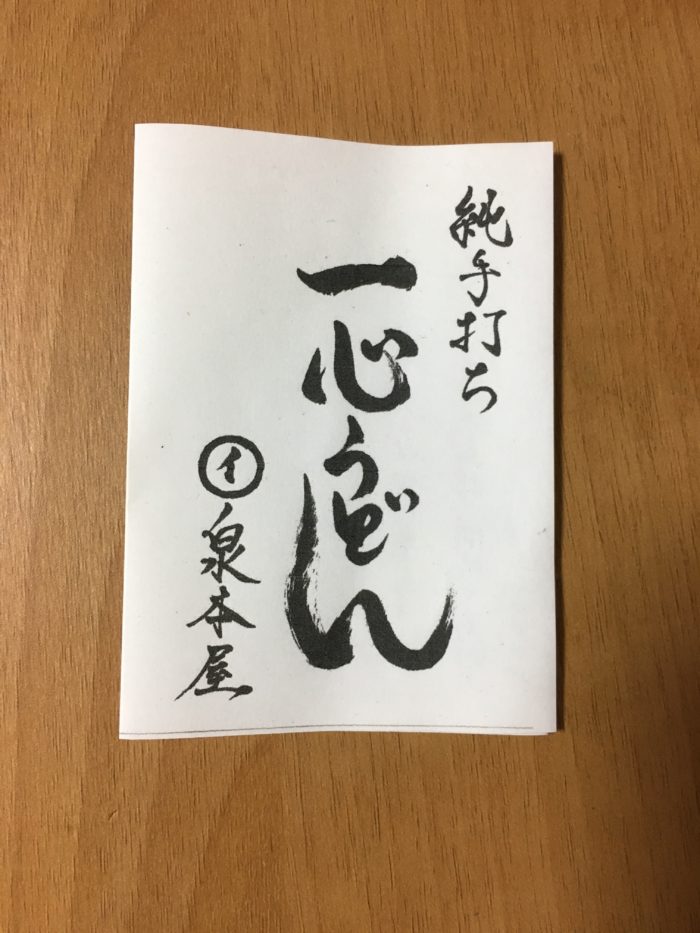 純手打ち
一心うどん
イ 泉本屋